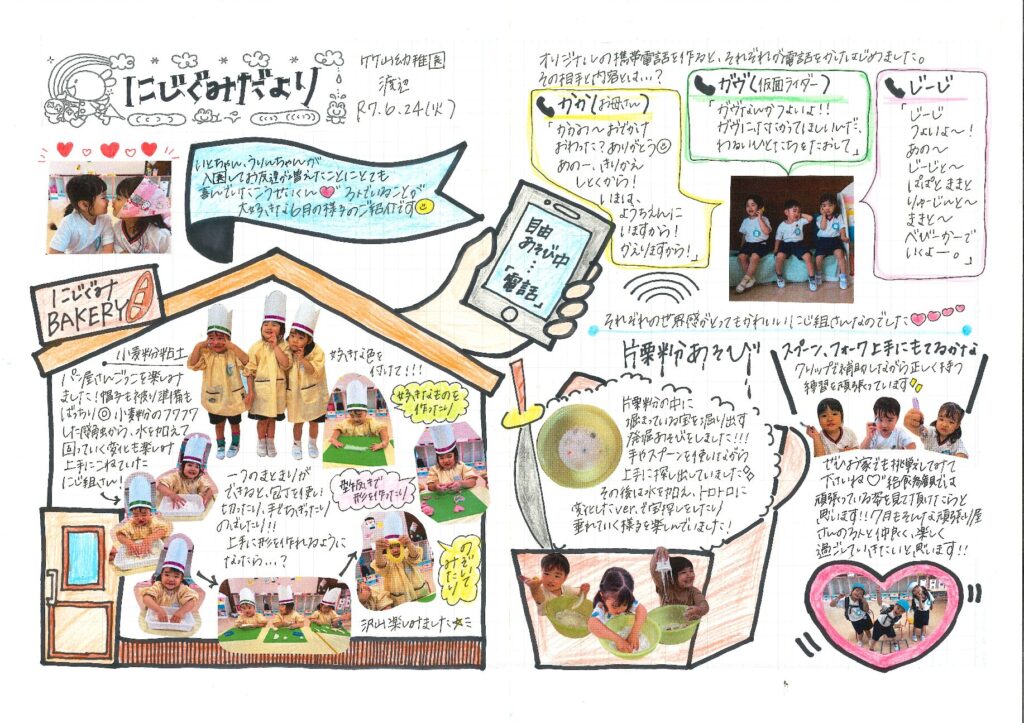 にじぐみだより
竹山幼稚園
渡辺
R7.6.24(火)
いとちゃん、うりんちゃんが
入園してお友達が増えたことにとても
喜んでいたこうせいくん♡ 3人でいることが
大好きな6月の様子のご紹介です
自由
あそび中
…
「電話」
オリジナルの携帯電話を作ると、それぞれが電話をかけはじめました。
その相手と内容とは…?
かか(お母さん)
「かかぁ〜おでかけ
おわった?ありがとう
あのー、きりかえ
しとくから!
いまは、
ようちえんに
いますから!
かえりますから!」
ガヴ(仮面ライダー)
「ガヴなんかつよいよ!!
ガヴにたたかってほしいんだ、
わるいひとたちをたおして」
じーじ
「じーじ
つよいよ〜!
あの〜
じーじと〜
ぱぱとままと
りゅーじんと〜
ままと〜
べびーかーで
いくよー。」
それぞれの世界感がとってもかわいいにじ組さんなのでした♡
にじぐみ
BAKERY
小麦粉粘土
パン屋さんごっこを楽しみ
ました!帽子を被り準備も
ばっちり◎小麦粉のフワフワ
した感触から、水を加えて
固っていく変化も楽しみ
上手にこねていた
にじ組さん!
好きな色を
付けて!!!
好きなものを
作ったり
一つのまとまりが
できると、包丁を使い
切ったり、手でちぎったり
のばしたり!!
上手に形を作れるように
なったら…?
型抜きで
形を作ったり
のぞいて
みたり
沢山楽しみました☆ミ
片栗粉あそび
片栗粉の中に
埋まっている宝を掘り出す
発掘あそびをしました!!!
手やスプーンを使いながら
上手に探し出していました
その後は水を加え、トロトロに
変化したver.で宝探しをしたり
垂れていく様子を楽しんでいました!
スプーン、フォーク上手にもてるかな
クリップを補助しながら正しく持つ
練習を頑張っています
ぜひお家でも挑戦してみて
下さいね♡給食参観では
頑張っている姿を見て頂けたらと
思います!!7月もそんな頑張り屋
さんの3人と仲良く、楽しく
過ごしていきたいと思います!!